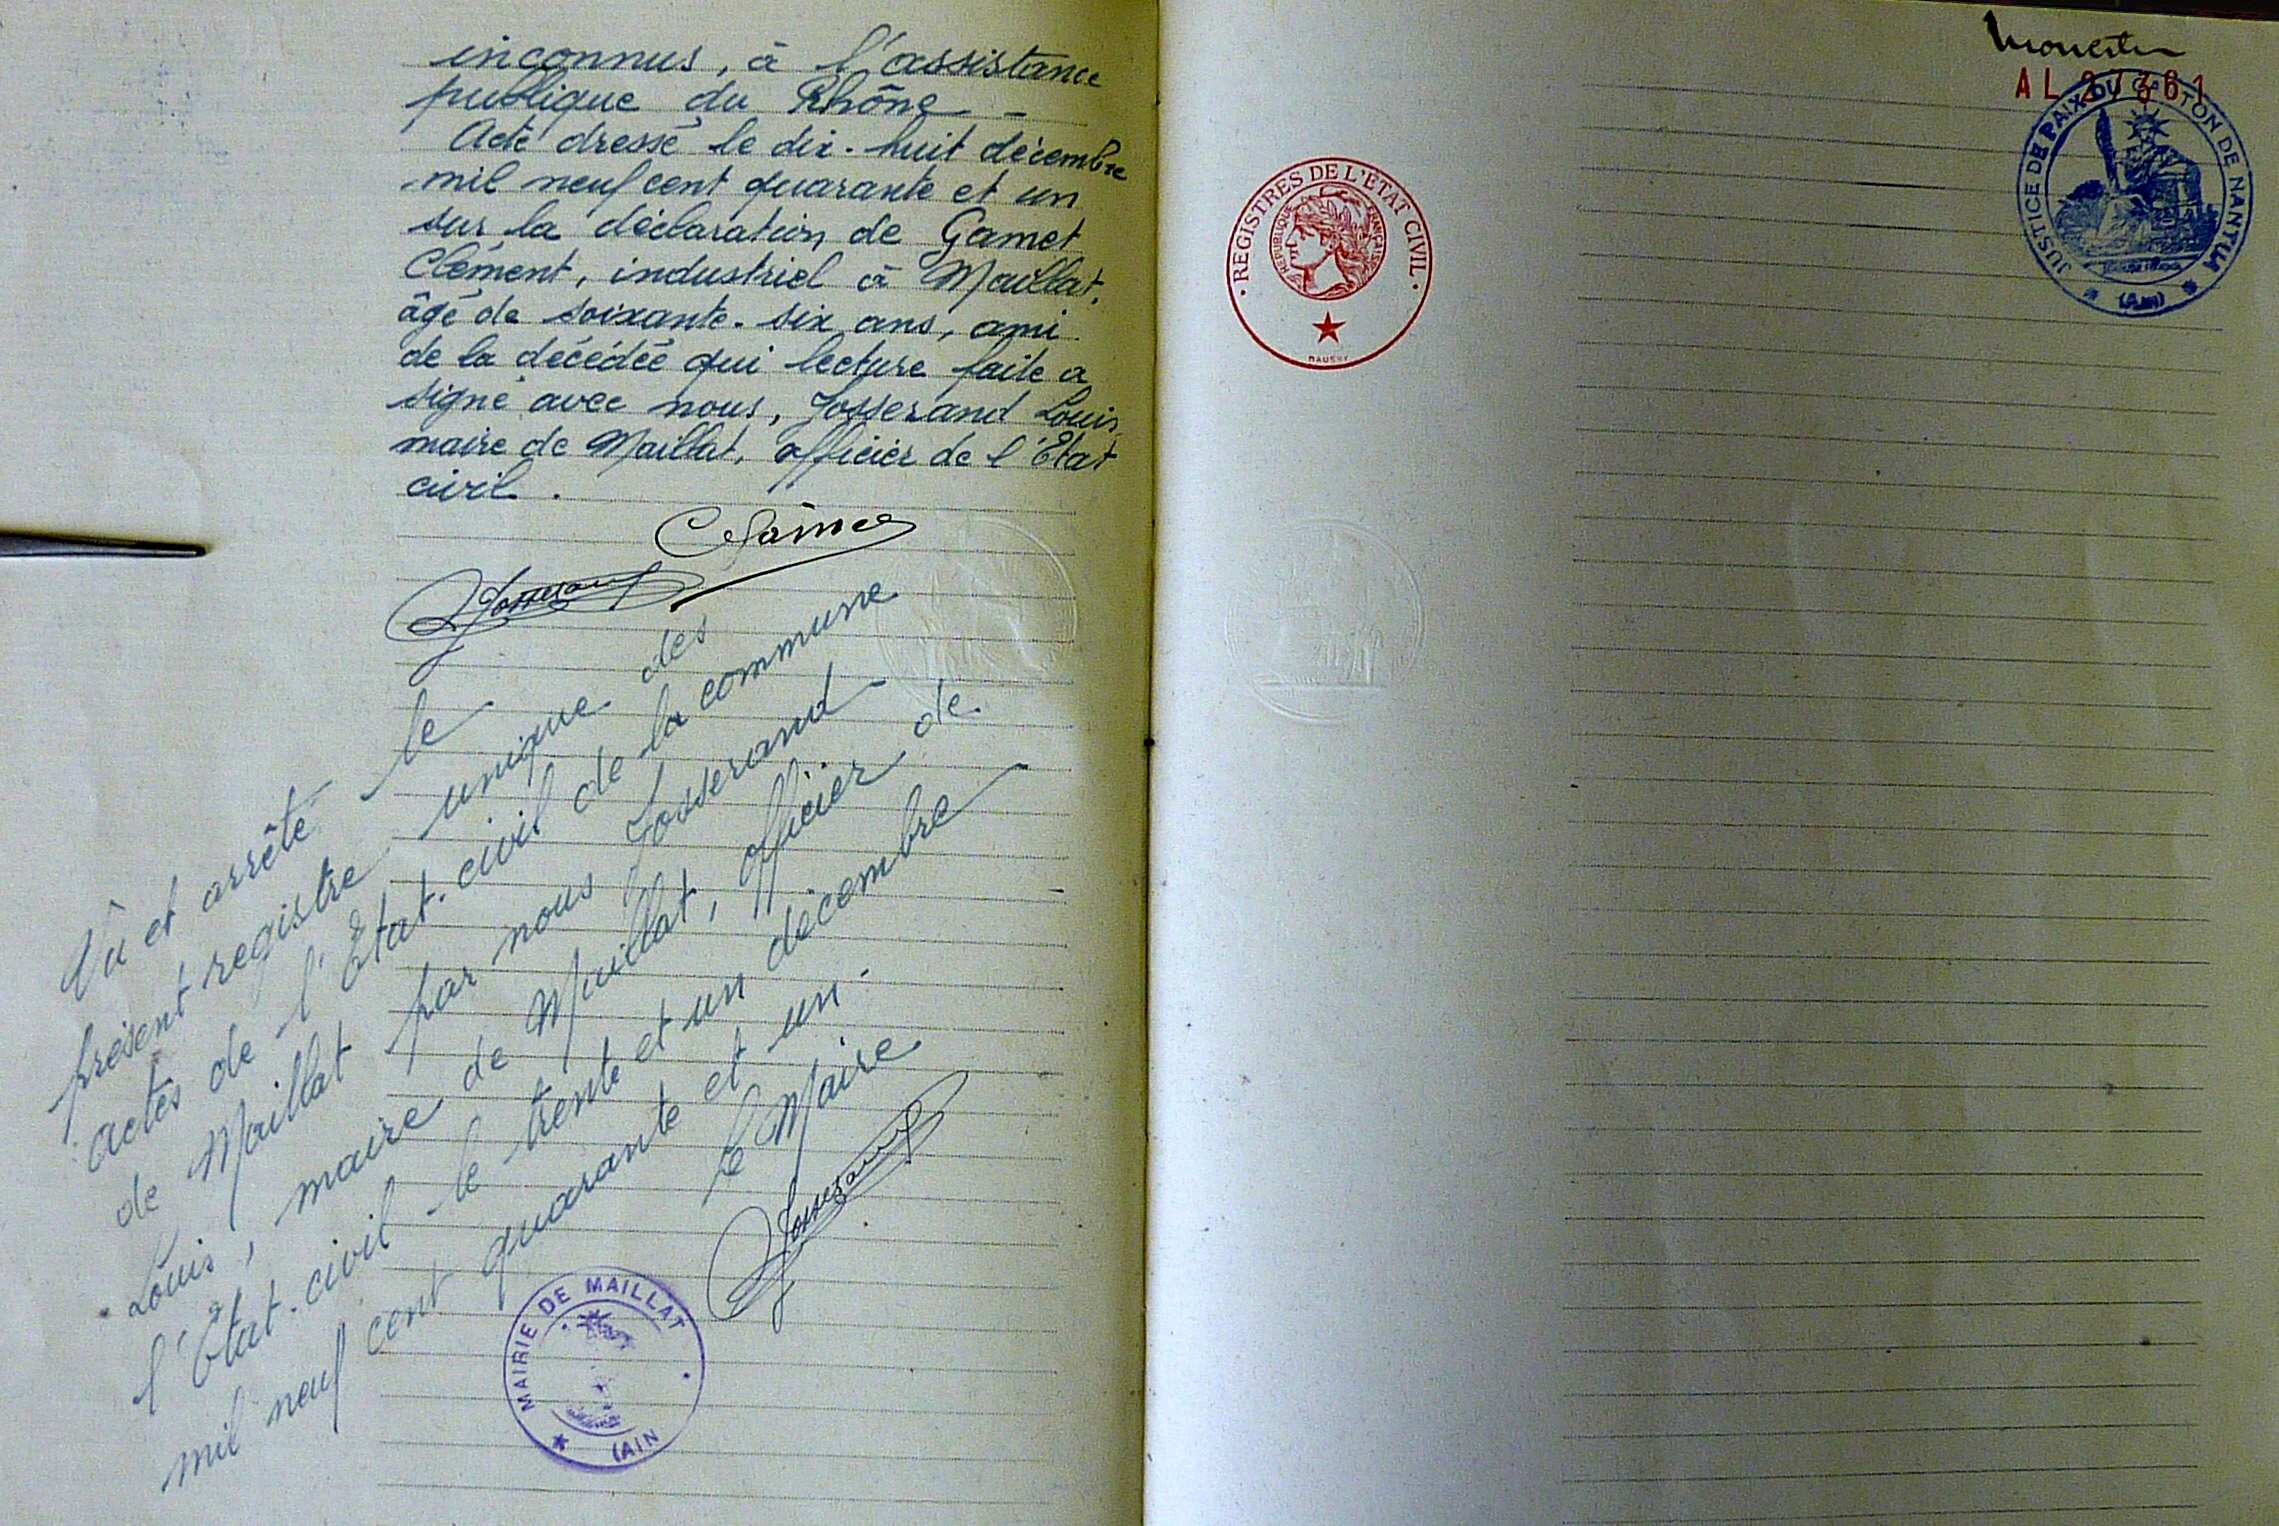 inconnus, à l'assistance
publique du Rhône -
Acte dressé le dix-huit décembre
mil neuf cent quarante et un
sur la déclaration de Gamet
Clément, industriel à Maillat,
âgé de soixante-six ans, ami
de la décédée qui lecture faite a
signé avec nous, Josserand Louis
maire de Maillat, officier de l'Etat
civil.
Josserand
Vu et arrêté le
présent registre unique des
actes de l'Etat-civil de la commune
de Maillat par nous Josserand
Louis, maire de Maillat, officier de
l'Etat-civil le trente et un décembre
mil neuf cent quarante et un.
le Maire
Josserand
MAIRIE DE MAILLAT
(AIN
REGISTRES DE L'ETAT CIVIL
REPUBLIQUE FRANÇAISE
AL
JUSTICE DE PAIX DU CANTON DE NANTUA
(Ain)